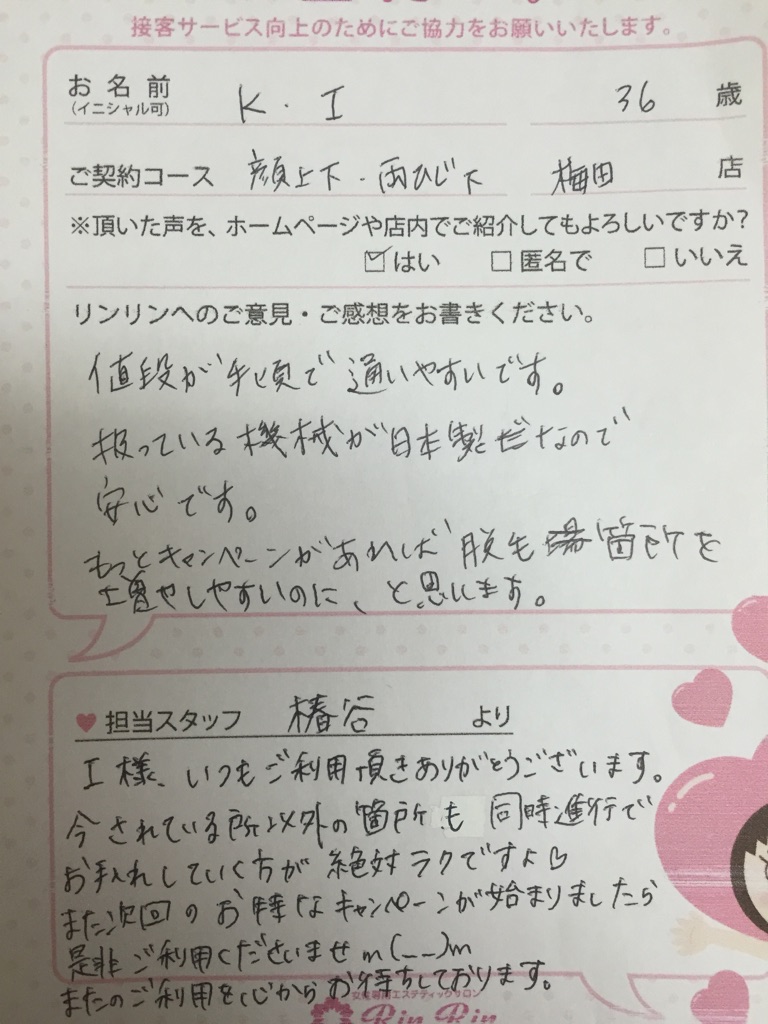 接客サービス向上のためにご協力をお願いいたします。
お名前 K・I 36 歳
(イニシャル可)
ご契約コース 顔上下・両ひじ下 梅田 店
※頂いた声を、ホームページや店内でご紹介してもよろしいですか?
☑はい □匿名で □いいえ
リンリンへのご意見・ご感想をお書きください。
値段が手頃で通いやすいです。
扱っている機械が日本製なので
安心です。
もっとキャンペーンがあれば脱毛箇所を
増やしやすいのに、と思います。
♥担当スタッフ 椿谷 より
I様、いつもご利用頂きありがとうございます。
今されている所以外の箇所も同時進行で
お手入れしていく方が絶対ラクですよ♡
また次回のお得なキャンペーンが始まりましたら
是非ご利用くださいませm(__)m
またのご利用を心からお待ちしております。
女性専用エステティックサロン
Rin Rin